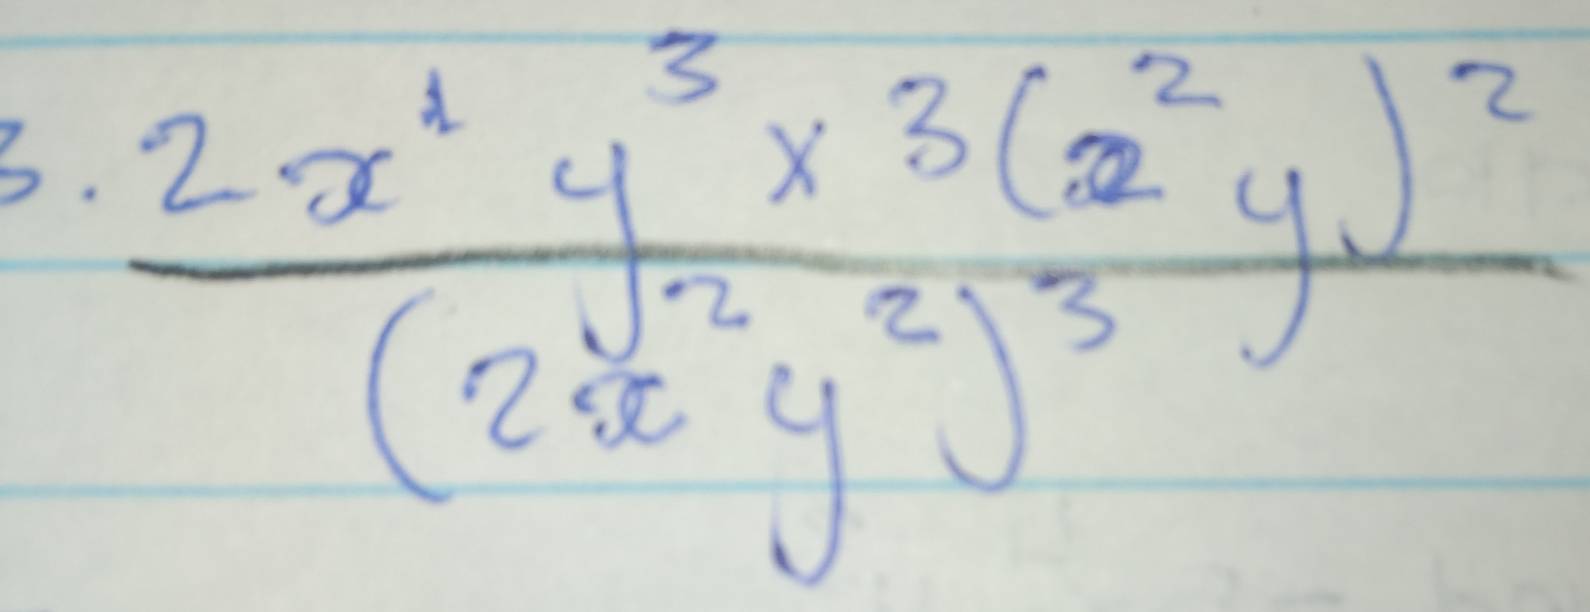 3. 2x¹y³ × 3(x²y)²
(2x²y²)³